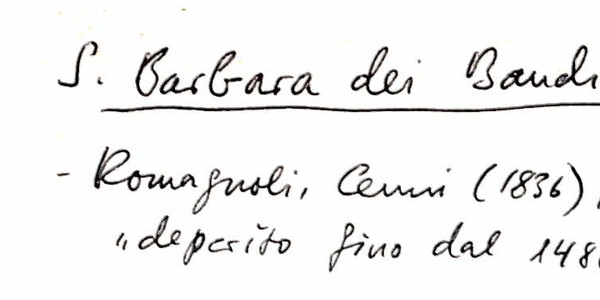 S. Barbara dei Band
- Romagnoli, Cenni (1836),
"deperito fino dal 148